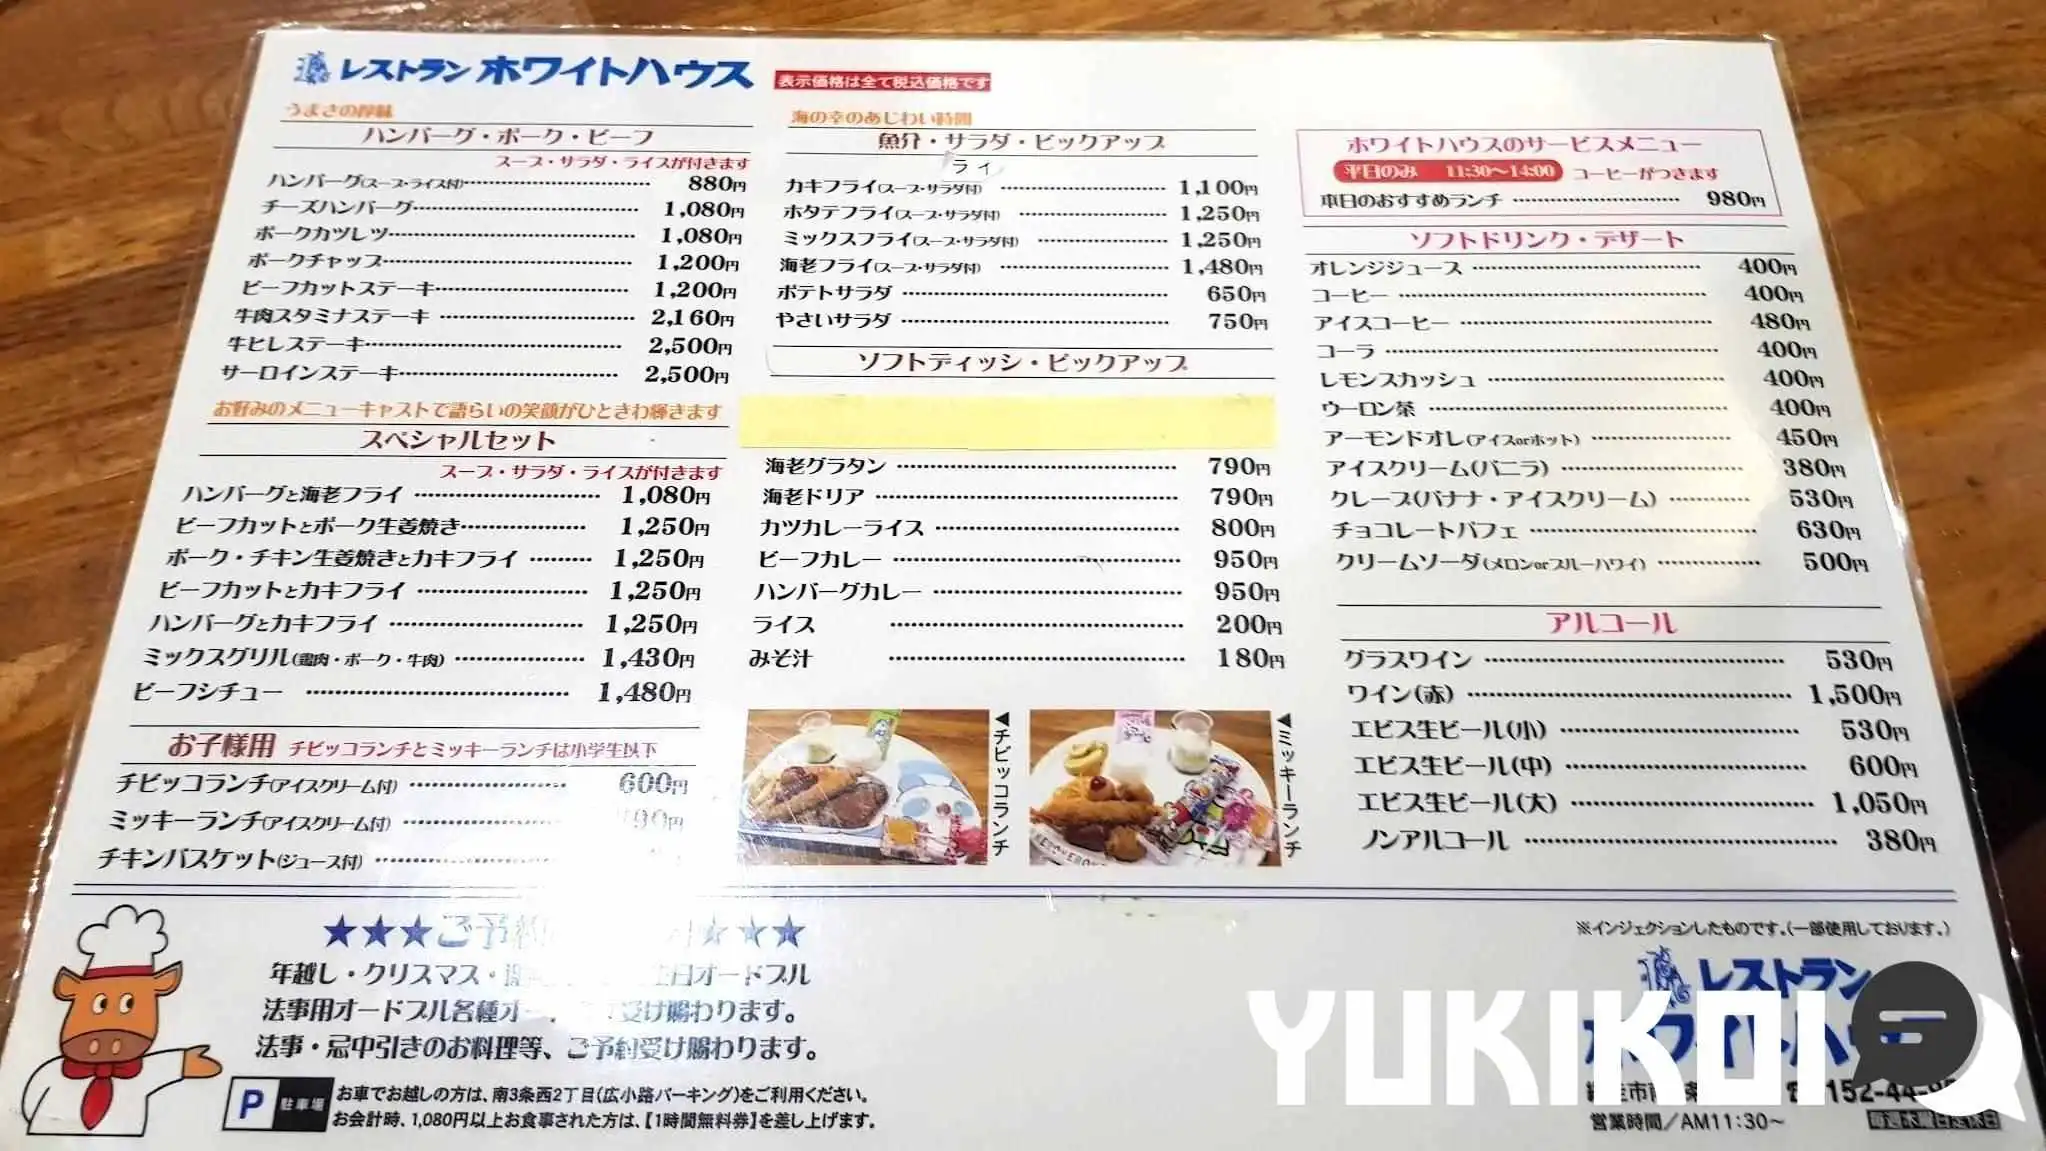 レストラン ホワイトハウス
表示価格は全て税込価格です
うまさの醍醐味
ハンバーグ・ポーク・ビーフ
スープ・サラダ・ライスが付きます
ハンバーグ(スープ・ライス付) 880円
チーズハンバーグ 1,080円
ポークカツレツ 1,080円
ポークチャップ 1,200円
ビーフカットステーキ 1,200円
牛肉スタミナステーキ 2,160円
牛ヒレステーキ 2,500円
サーロインステーキ 2,500円
お好みのメニューキャストで語らいの笑顔がひときわ輝きます
スペシャルセット
スープ・サラダ・ライスが付きます
ハンバーグと海老フライ 1,080円
ビーフカットとポーク生姜焼き 1,250円
ポーク・チキン生姜焼きとカキフライ 1,250円
ビーフカットとカキフライ 1,250円
ハンバーグとカキフライ 1,250円
ミックスグリル(鶏肉・ポーク・牛肉) 1,430円
ビーフシチュー 1,480円
お子様用 チビッコランチとミッキーランチは小学生以下
チビッコランチ(アイスクリーム付) 600円
ミッキーランチ(アイスクリーム付) 90円
チキンバスケット(ジュース付)
海の幸のあじわい時間
魚介・サラダ・ピックアップ
ライ
カキフライ(スープ・サラダ付) 1,100円
ホタテフライ(スープ・サラダ付) 1,250円
ミックスフライ(スープ・サラダ付) 1,250円
海老フライ(スープ・サラダ付) 1,480円
ポテトサラダ 650円
やさいサラダ 750円
ソフトディッシ・ピックアップ
海老グラタン 790円
海老ドリア 790円
カツカレーライス 800円
ビーフカレー 950円
ハンバーグカレー 950円
ライス 200円
みそ汁 180円
◀チビッコランチ
◀ミッキーランチ
ホワイトハウスのサービスメニュー
平日のみ 11:30～14:00 コーヒーがつきます
本日のおすすめランチ 980円
ソフトドリンク・デザート
オレンジジュース 400円
コーヒー 400円
アイスコーヒー 480円
コーラ 400円
レモンスカッシュ 400円
ウーロン茶 400円
アーモンドオレ(アイスorホット) 450円
アイスクリーム(バニラ) 380円
クレープ(バナナ・アイスクリーム) 530円
チョコレートパフェ 630円
クリームソーダ(メロンorブルーハワイ) 500円
アルコール
グラスワイン 530円
ワイン(赤) 1,500円
エビス生ビール(小) 530円
エビス生ビール(中) 600円
エビス生ビール(大) 1,050円
ノンアルコール 380円
★★★ご予約 ★★★
年越し・クリスマス・ 生日オードブル
法事用オードブル各種オー 受け賜わります。
法事・忌中引きのお料理等、ご予約受け賜わります。
P 駐車場
お車でお越しの方は、南3条西2丁目(広小路パーキング)をご利用ください。
お会計時、1,080円以上お食事された方は、【1時間無料券】を差し上げます。
※インジェクションしたものです。(一部使用しております。)
レストラン
ホワイトハウ
走市南 条 ☎152-44-
営業時間／AM11:30～ 毎週木曜日定休日
YUKIKOI